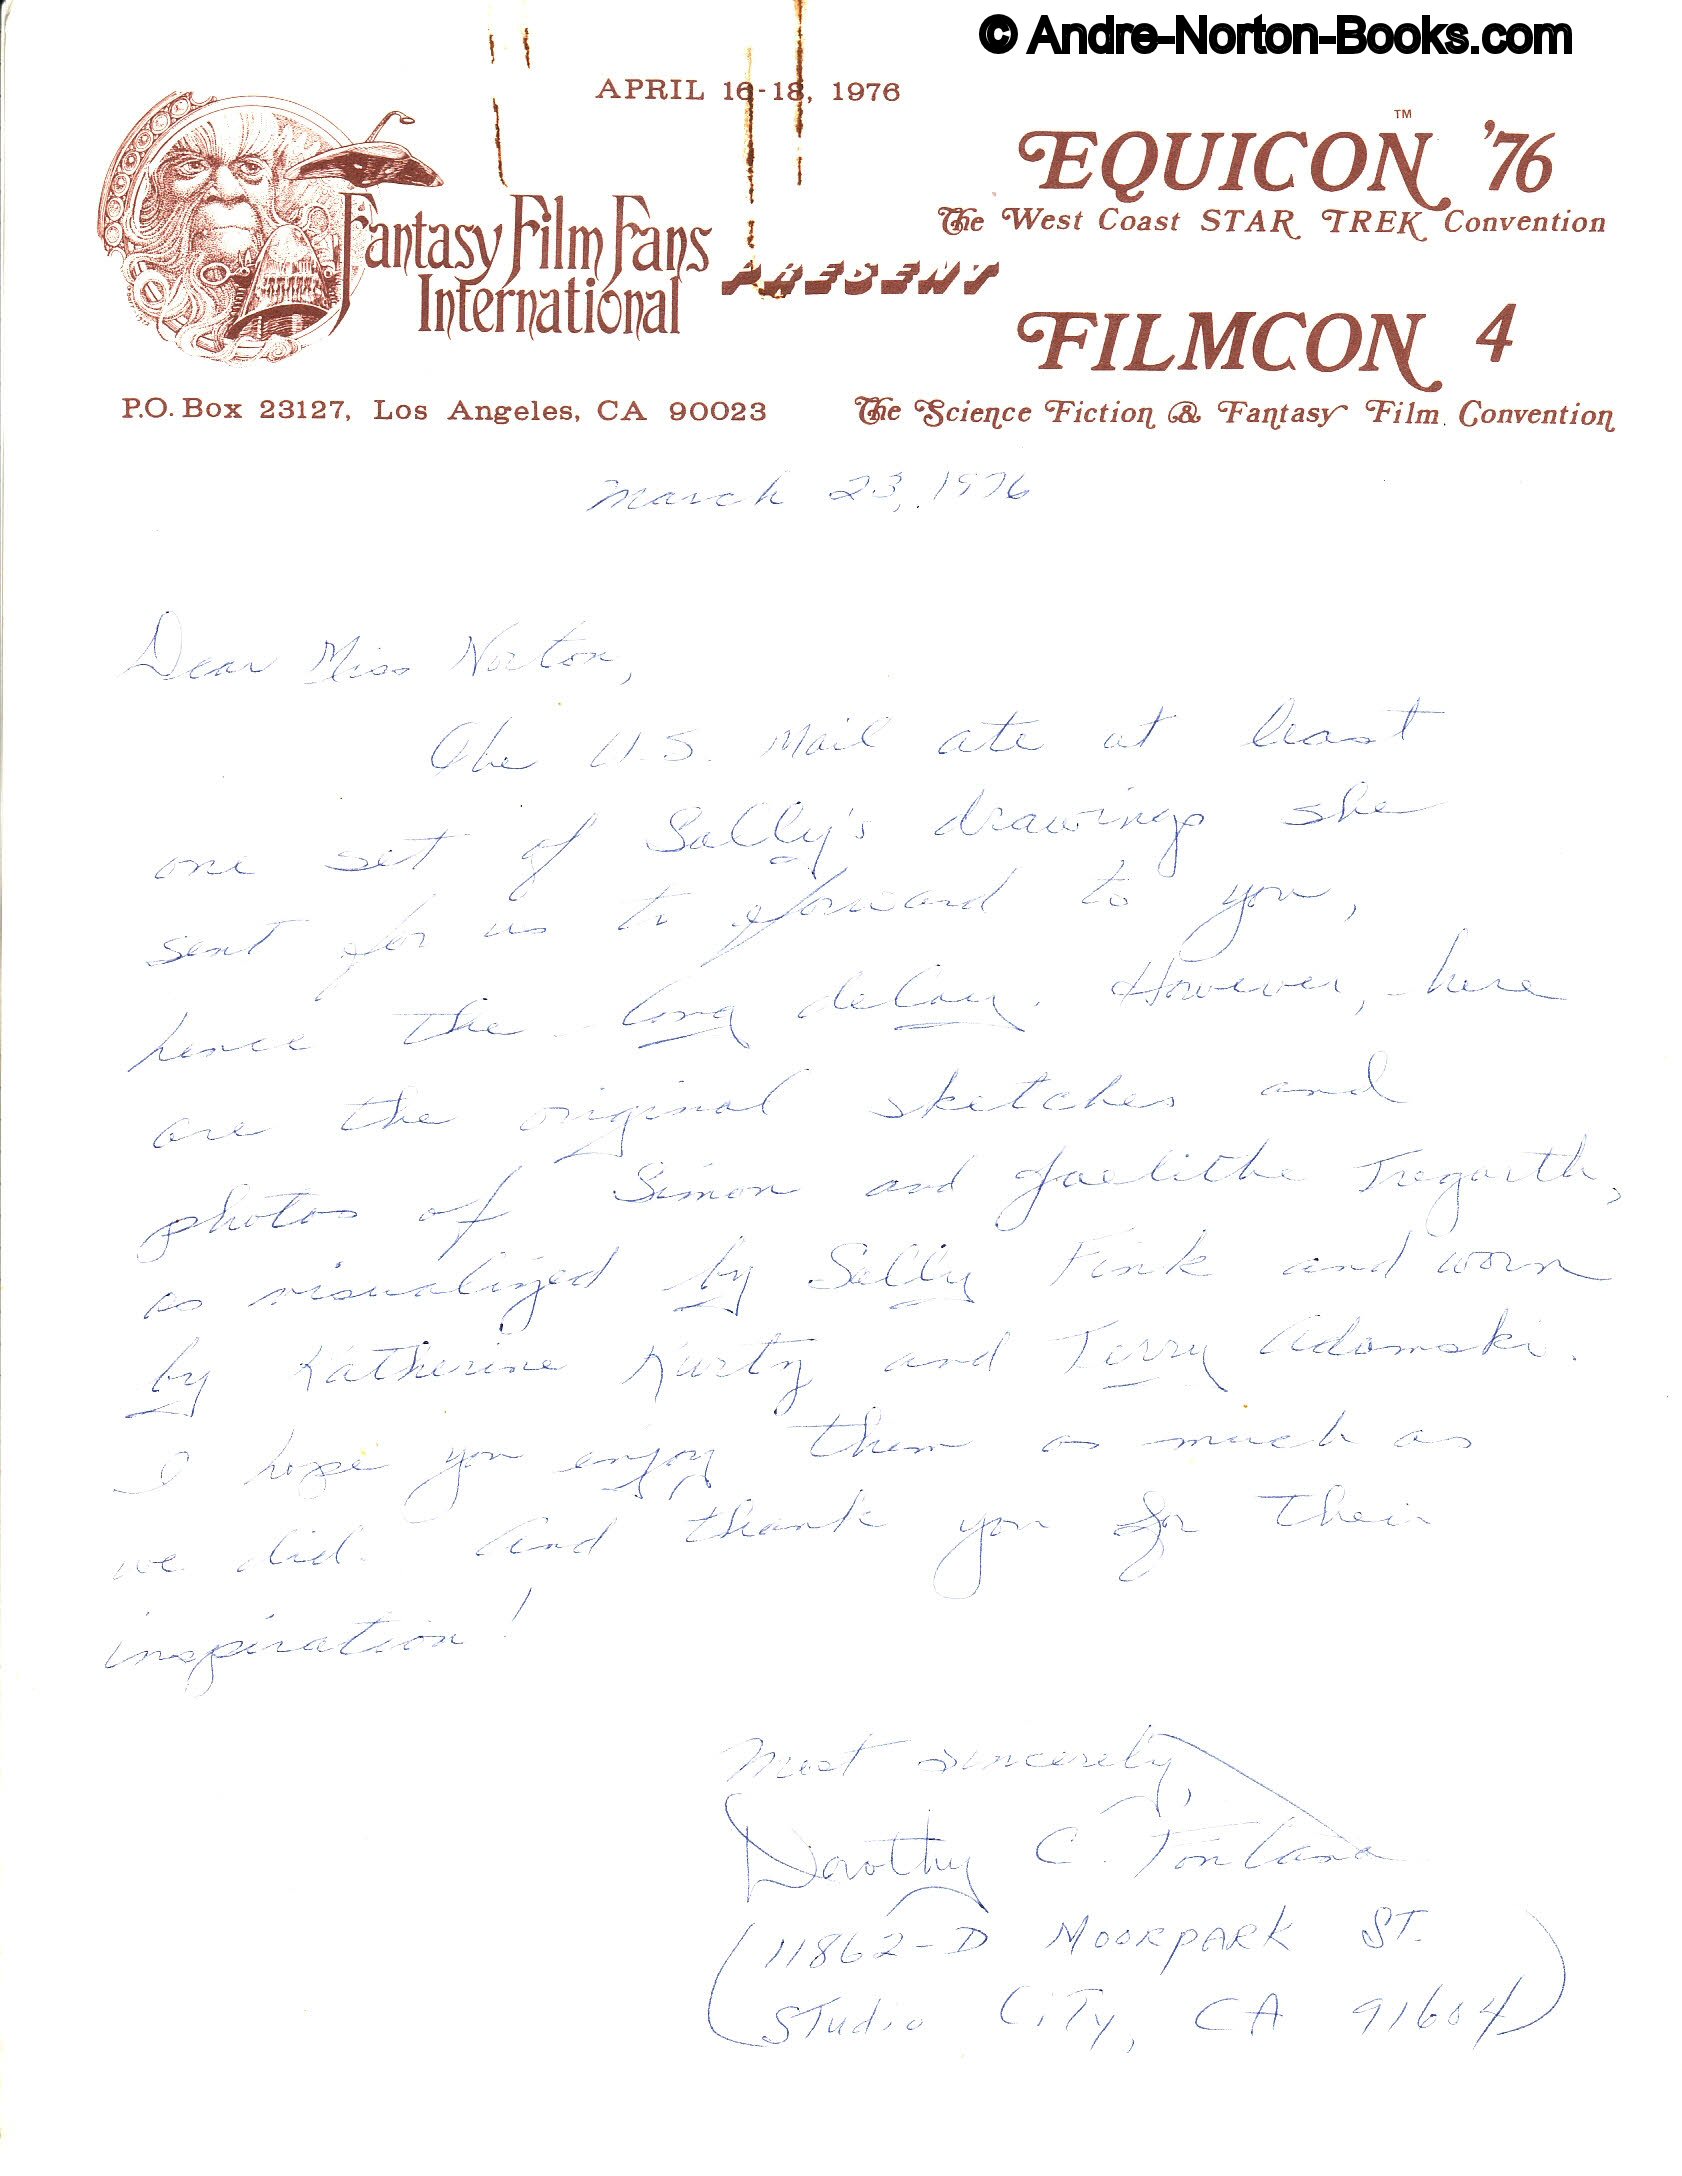 © Andre-Norton-Books.com
APRIL 16-18, 1976
EQUICON ™ '76
The West Coast STAR TREK Convention
Fantasy Film Fans
International
PRESENT
FILMCON 4
P.O. Box 23127, Los Angeles, CA 90023
The Science Fiction & Fantasy Film Convention
March 23, 1976
Dear Miss Norton,
The U.S. Mail ate at least
one set of Sally's drawings she
sent for us to forward to you,
hence the long delay. However, here
are the original sketches and
photos of Simon and Jaelithe Tregarth,
as visualized by Sally Fink and worn
by Katherine Kurtz and Terry Adamski.
I hope you enjoy them as much as
we did. And thank you for their
inspiration!
Most sincerely,
Dorothy C. Fontana
(11862-D MOORPARK ST.
STUDIO CITY, CA 91604)